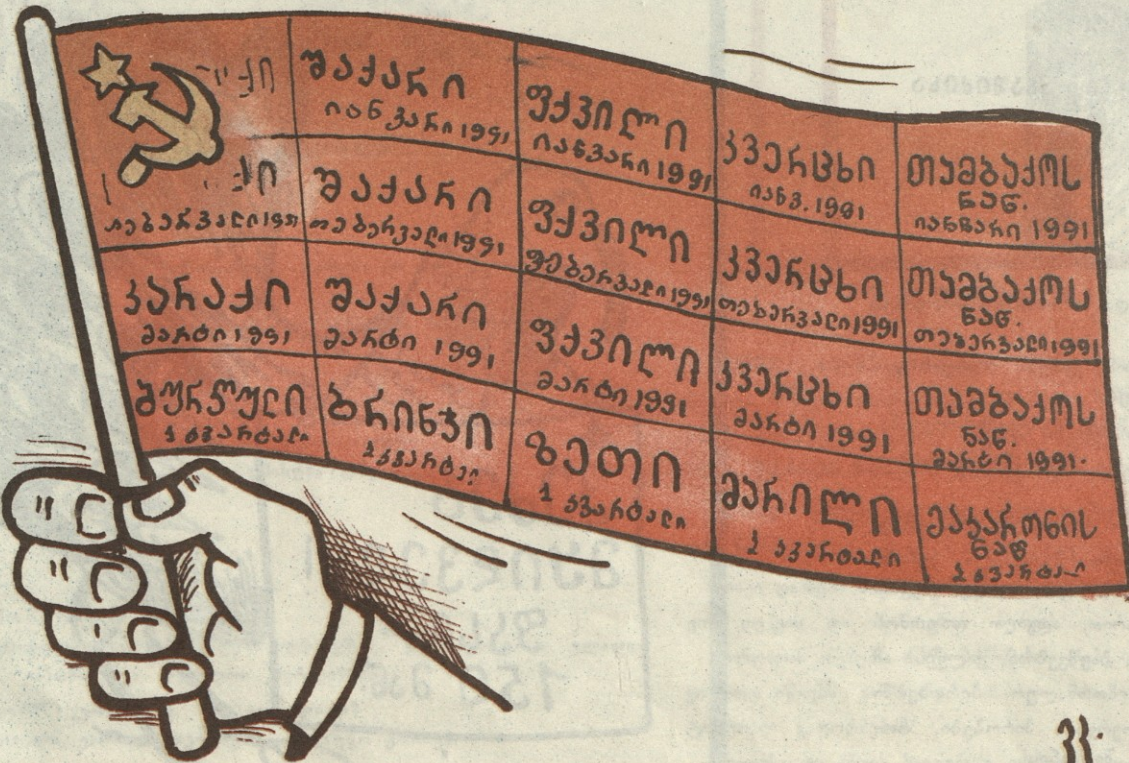 ქი
შაქარი
იანვარი 1991
ფქვილი
იანვარი 1991
კვერცხი
იანვ. 1991
თამბაქოს
ნაწ.
იანვარი 1991
ქი
თებერვალი 1991
შაქარი
თებერვალი 1991
ფქვილი
თებერვალი 1991
კვერცხი
თებერვალი 1991
თამბაქოს
ნაწ.
თებერვალი 1991
კარაქი
მარტი 1991
შაქარი
მარტი 1991
ფქვილი
მარტი 1991
კვერცხი
მარტი 1991
თამბაქოს
ნაწ.
მარტი 1991.
ბურღული
1 კვარტალი
ბრინჯი
1 კვარტალ
ზეთი
1 კვარტალი
მარილი
1 კვარტალი
მაკარონის
ნაწ
1 კვარტალ